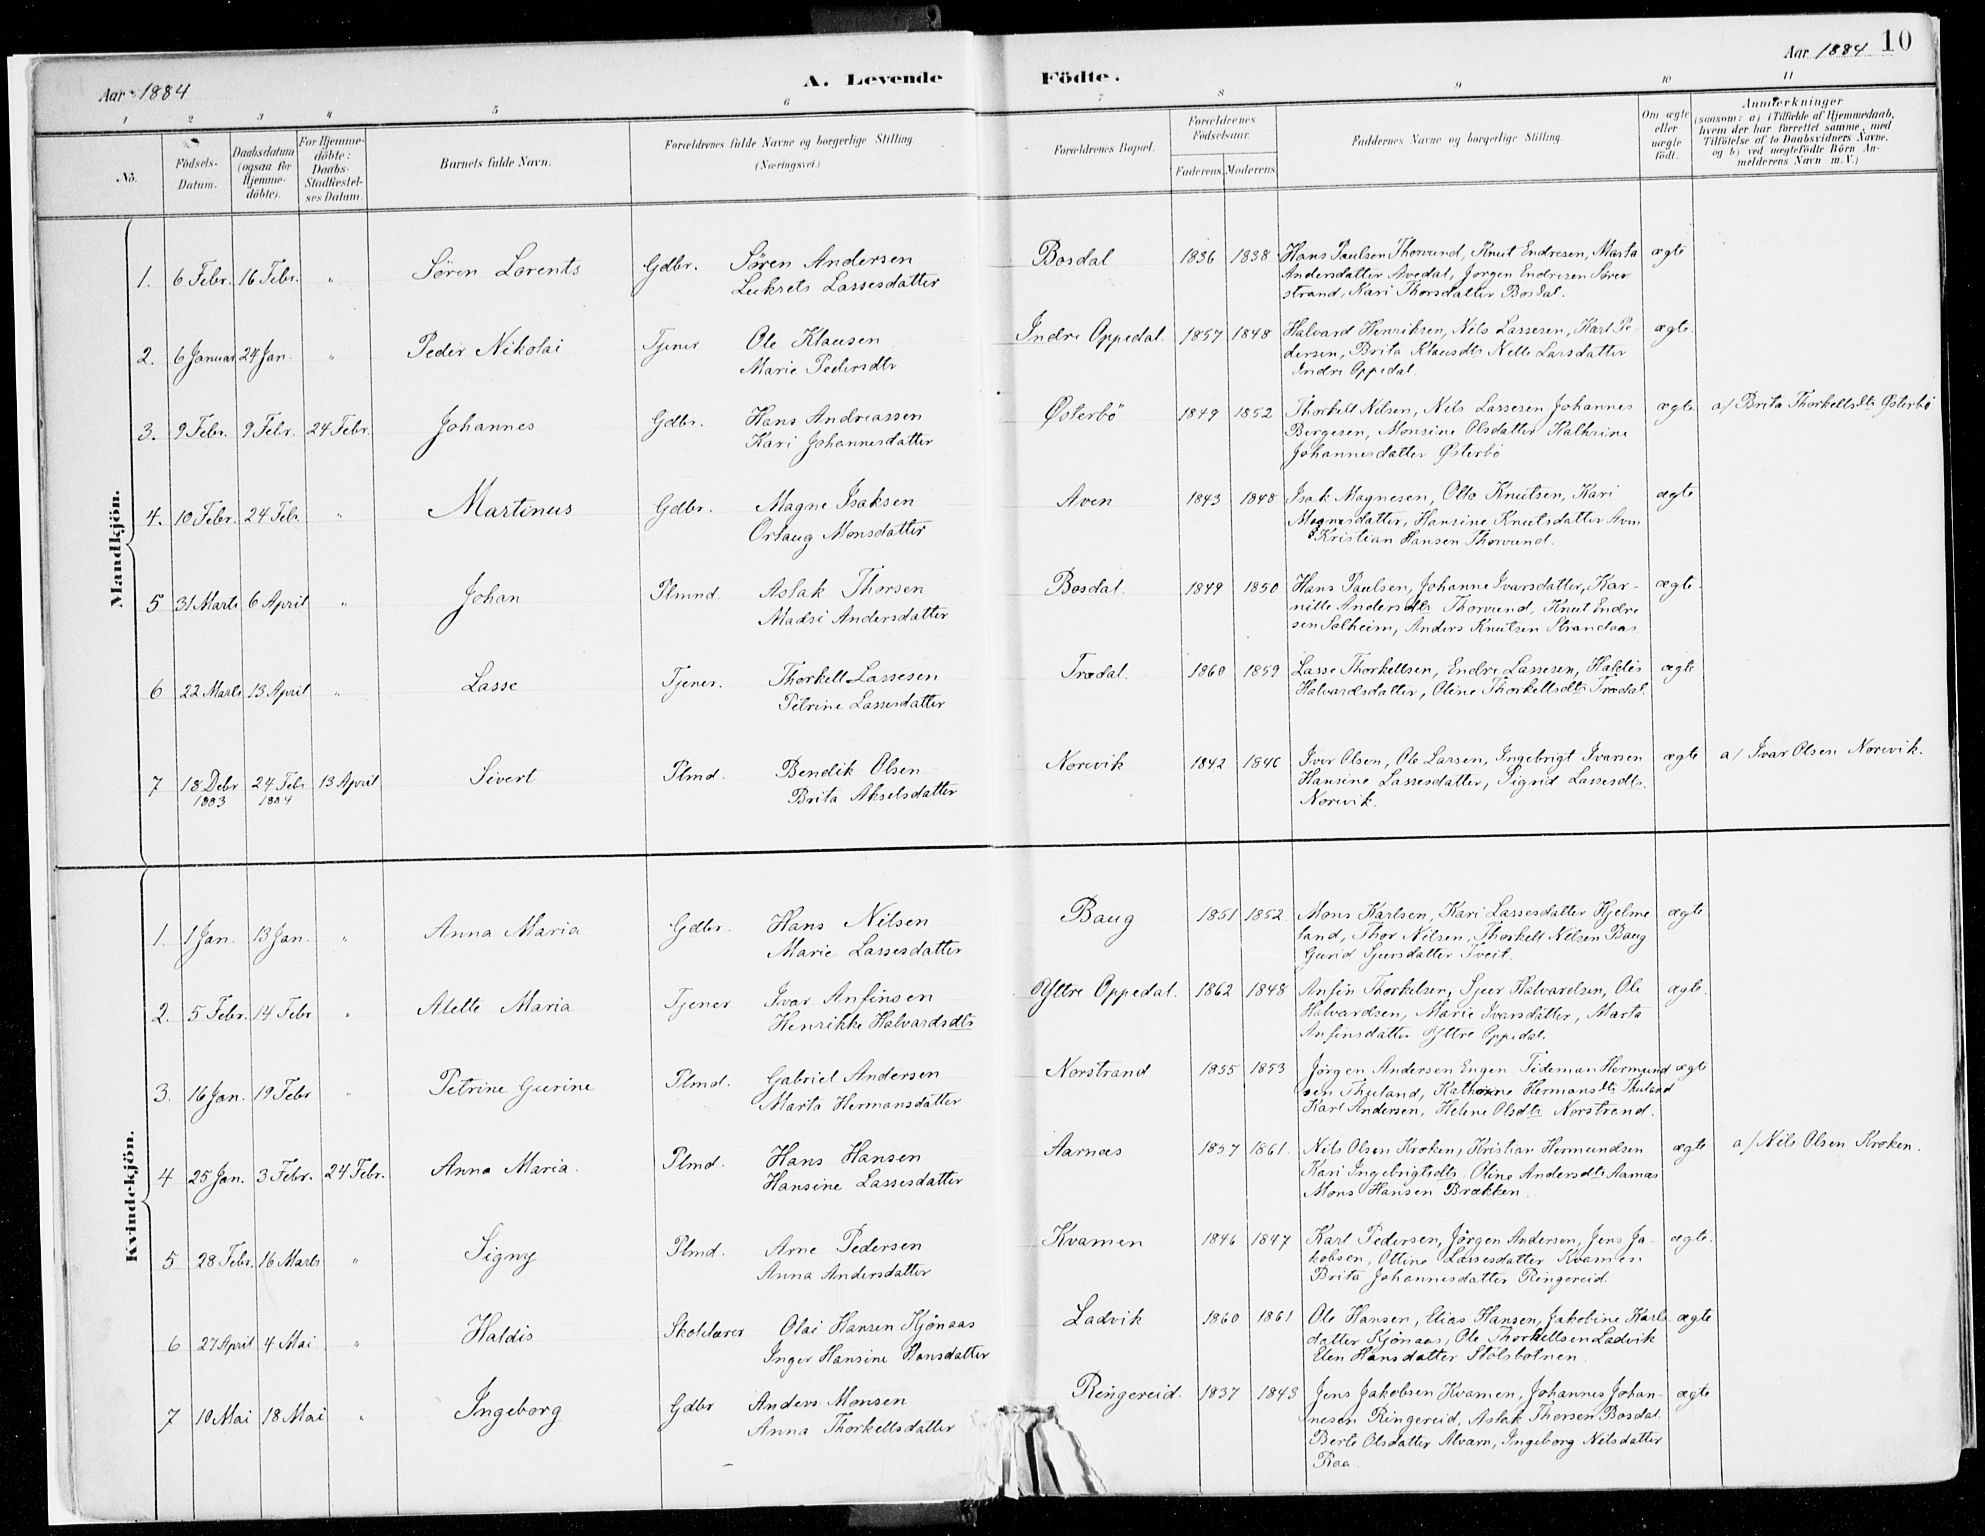 Aar 1884
A. Levende Födte.
Aar 1884 10
1 2 3 4 5 6 7 8 9 10 11
No. Födsels-Datum. Daabsdatum (ogsaa for Hjemme-döbte). For Hjemme-döbte: Daabs-Stadfæstel-ses Datum. Barnets fulde Navn. Forældrenes fulde Navne og borgerlige Stilling. (Næringsvei) Forældrenes Bopæl. Forældrenes Födselsaar. Faderens. Moderens. Faddernes Navne og borgerlige Stilling. Om ægte eller uægte födt. Anmærkninger (saasom: a) i Tilfælde af Hjemmedaab, hvem der har forrettet samme, med Tilföielse af to Daabsvidners Navne, og b) ved uægtefödte Börn An-melderens Navn m.V.)
Mandkjön.
1. 6 Febr. 16 Febr. " Søren Lorents Gdbr. Søren Andersen Bosdal 1836 1838 Hans Paulsen Thorvund, Knut Endresen, Marta ægte
Lukrets Lassesdatter Andersdatter Avedal, Jørgen Endresen Sører
strand, Kari Thorsdatter Bosdal.
2. 6 Januar 24 Jan. " Peder Nikolai Tjener Ole Klausen Indre Oppedal. 1857 1848 Halvard Henriksen, Nils Lassesen, Karl Pe- ægte.
Marie Pedersdtr dersen, Brita Klausdtr Nille Larsdatter
Indre Oppedal.
3. 9 Febr. 9 Febr. 24 Febr. Johannes Gdbr. Hans Andreassen Østerbö 1849 1852 Thorkell Nilsen, Nils Lassesen Johannes ægte a/ Brita Thorkellsdtr Østerbö
Kari Johannesdatter Børgesen, Monsine Olsdatter Kathrine
Johannesdatter Østerbö
4. 10 Febr. 24 Febr. " Martinus Gdbr. Magne Isaksen Aven 1843 1848 Isak Magnesen, Otto Knutsen, Kari ægte
Orlaug Monsdatter Magnesdatter, Hansine Knutsdatter Aven
Kristian Hansen Thorvund.
5 31 Marts 6 April " Johan Plmnd. Aslak Thorsen Bosdal. 1849 1850 Hans Paulsen, Johanne Ivarsdatter, Kar- ægte
Madsi Andersdatter nille Andersdtr Thorvund, Knut Endre
sen Solheim, Anders Knutsen Strandaas
6 22 Marts 13 April " Lasse Tjener. Thorkell Lassesen Trædal. 1860 1859 Lasse Thorkellsen, Endre Lassesen, Haldis ægte
Petrine Lassesdatter Halvardsdatter, Oline Thorkellsdtr Trædal.
7 18 Debr 24 Febr 13 April Sivert Plmd. Bendik Olsen Norevik 1842 1846 Iver Olsen, Ole Larsen, Ingebrigt Ivarsen ægte a/ Ivar Olsen Norevik.
1883 1884 Brita Akselsdatter Hansine Lassesdatter, Sigrid Lassesdtr.
Norevik.
Kvindekjön.
1. 1 Jan. 13 Jan. " Anna Maria Gdbr. Hans Nilsen Baug 1851 1852. Mons Karlsen, Kari Lassesdatter Hjelme ægte
Marie Lassesdatter land, Thor Nilsen, Thorkell Nilsen Baug
Gurid Sjursdatter Tveit.
2. 5 Febr. 14 Febr " Alette Maria Tjener Ivar Anfinsen Yttre Oppedal. 1862 1848 Anfin Thorkelsen, Sjur Halvardsen, Ole ægte.
Henrikke Halvardsdtr Halvardsen, Marie Ivarsdatter, Marta
Anfinsdatter Yttre Oppedal.
3. 16 Jan. 19 Febr " Petrine Gurine Plmd. Gabriel Andersen Norstrand 1855 1853 Jörgen Andersen Engen. Tideman Hermund ægte
Marta Hermansdatter sen Thuland, Kathrine Hermansdtr Thuland
Karl Andersen, Helene Olsdtr Norstrand.
4 25 Jan. 3 Febr. 24 Febr. Anna Maria. Plmd. Hans Hansen Aarnæs 1857 1861. Nils Olsen Kroken, Kristian Hermundsen ægte a/ Nils Olsen Kroken.
Hansine Lassesdatter Kari Ingebrigtsdtr Oline Andersdtr Aarnæs
Mons Hansen Brækken.
5 28 Febr. 16 Marts " Signy Plmd. Arne Pedersen Kvamen 1846 1847 Karl Pedersen, Jörgen Andersen, Jens Ja- ægte.
Anna Andersdatter kobsen, Olline Lassesdatter Kvamen
Brita Johannesdatter Ringereid.
6 27 April 4 Mai " Haldis Skolelærer Olai Hansen Kjönaas Ladvik 1860 1861 Ole Hansen, Elias Hansen, Jakobine Karls ægte
Inger Hansine Hansdatter datter Kjönaas, Ole Thorkellsen Ladvik
Elen Hansdatter Stölsbotnen.
7 10 Mai 18 Mai " Ingeborg Gdbr Anders Monsen Ringereid. 1837 1843 Jens Jakobsen Kvamen, Johannes Johan- ægte
Anna Thorkellsdatter nesen Ringereid, Aslak Thorsen Bosdal.
Berte Olsdatter Alvarn, Ingeborg Nilsdatter
Raa.